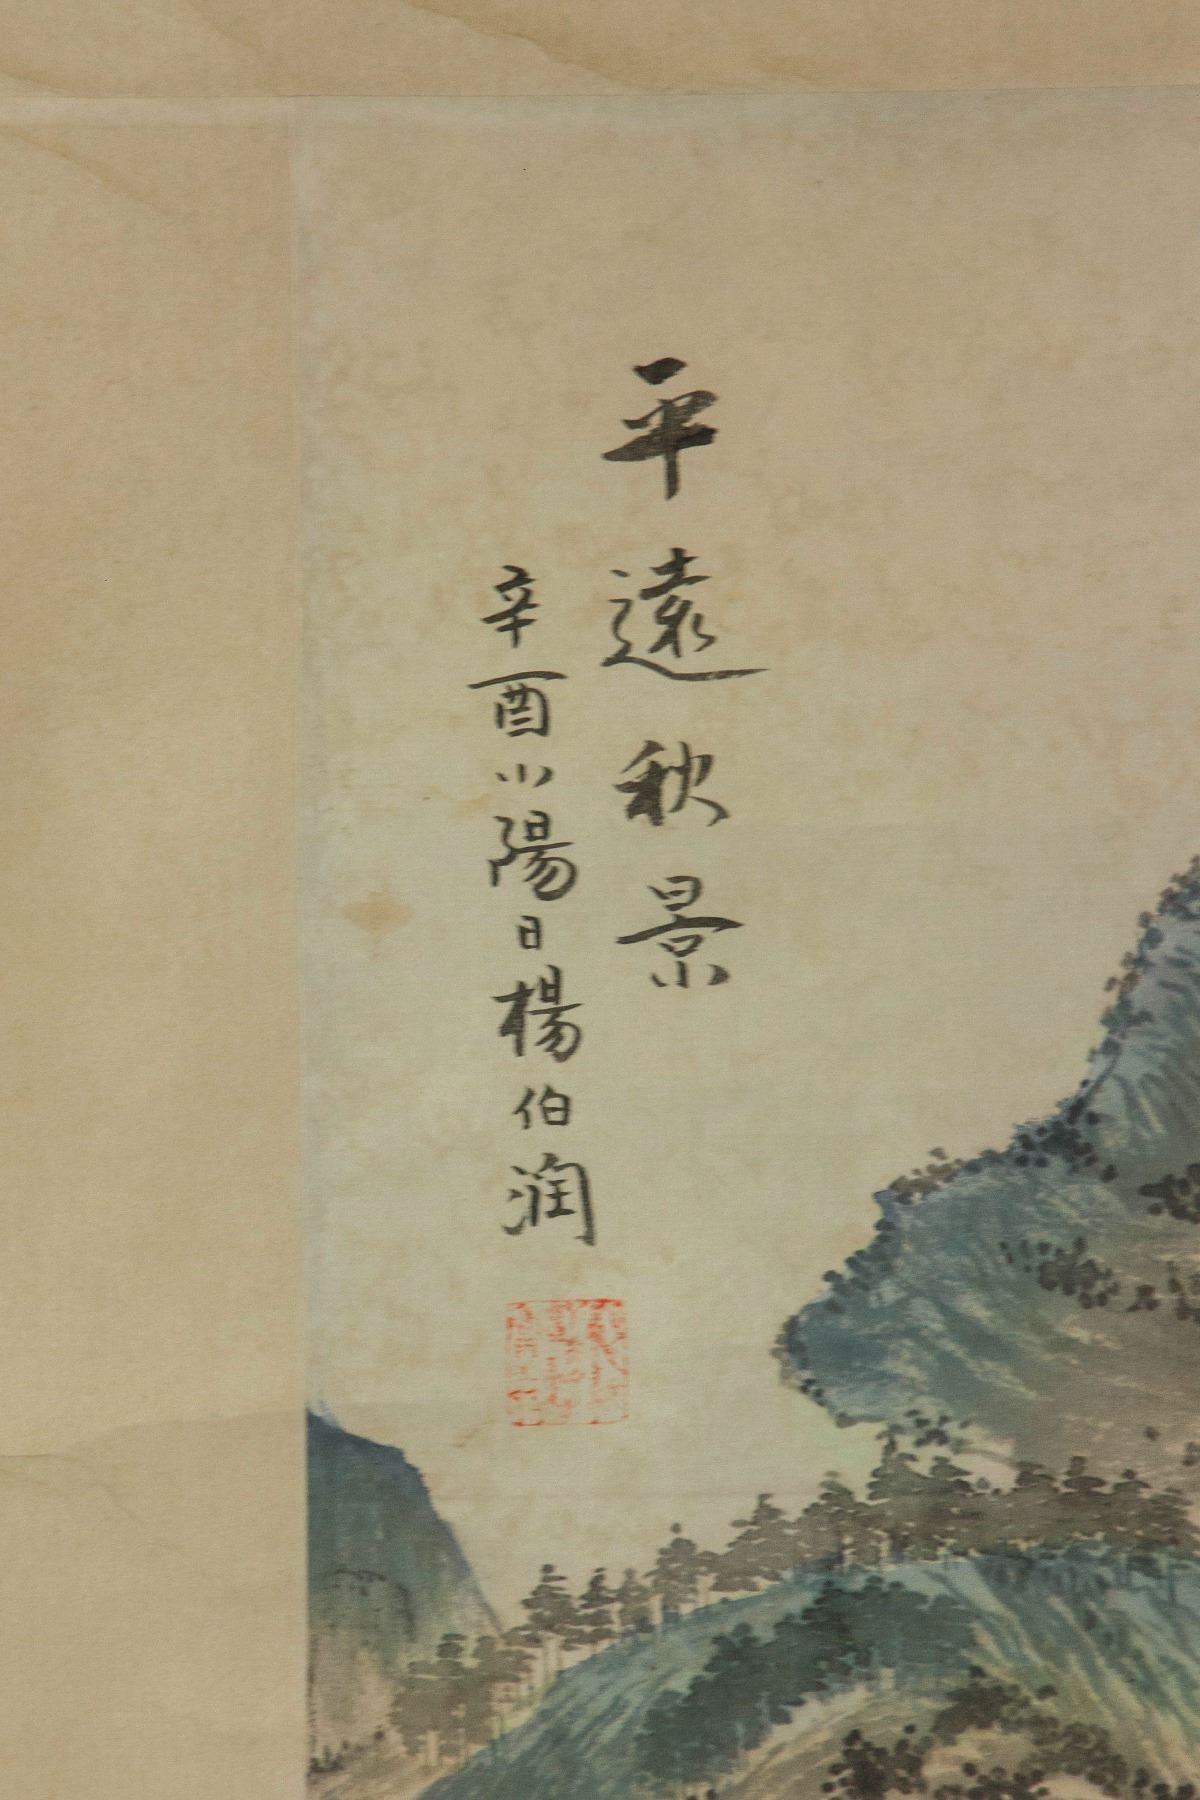 平遠秋景
辛酉小陽日楊伯润